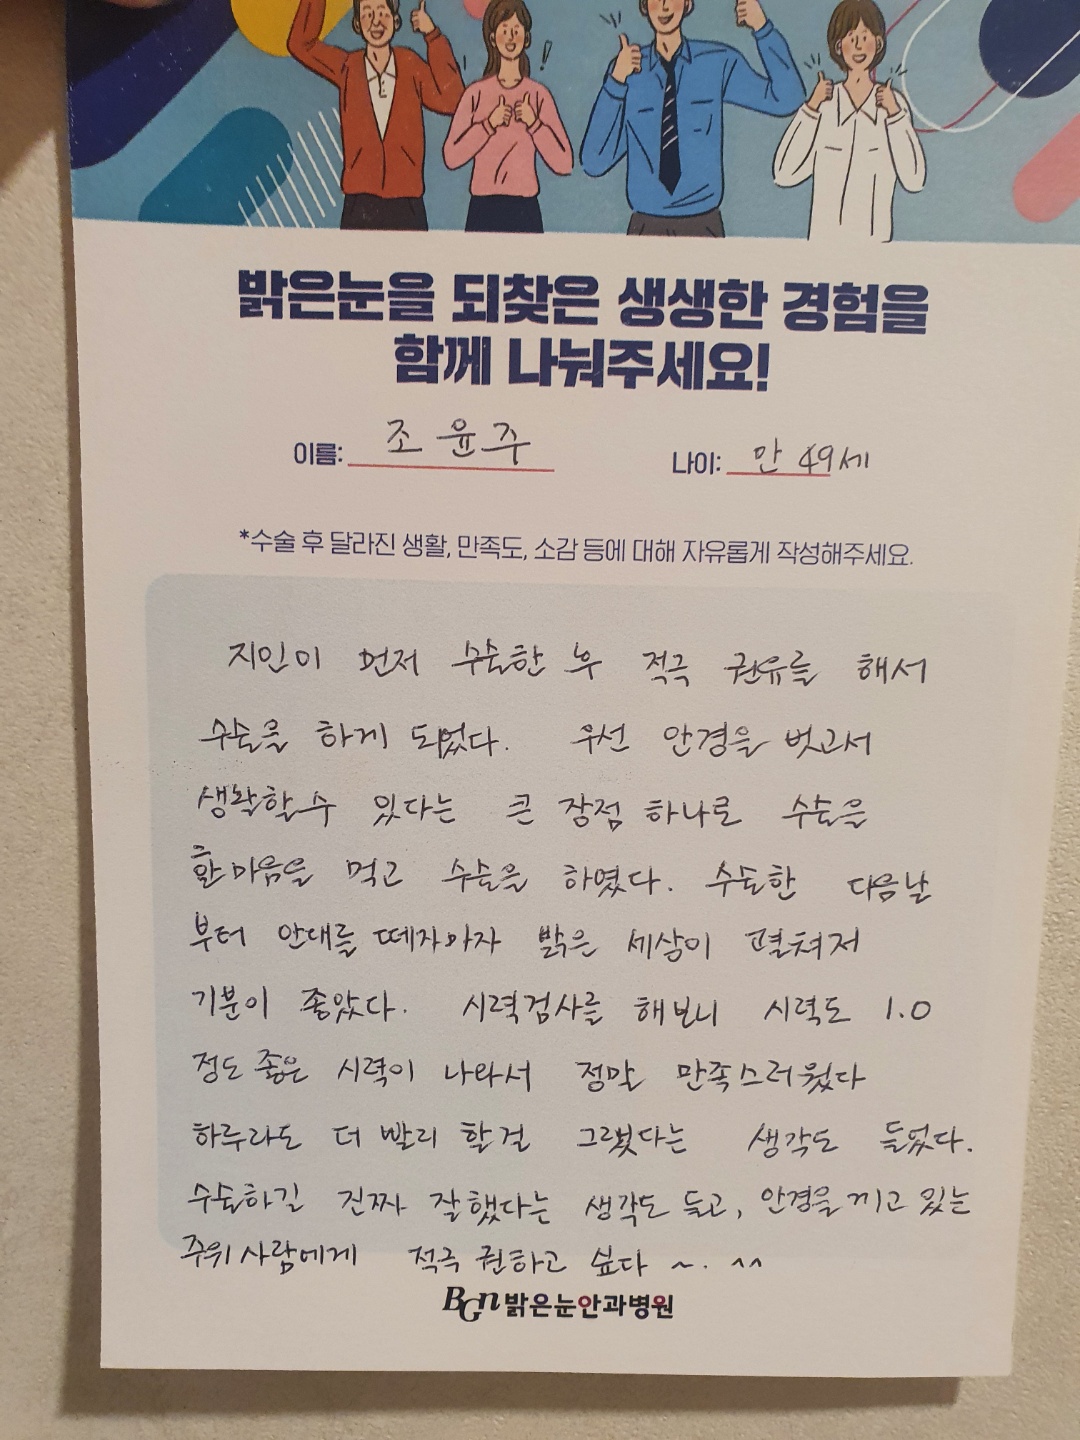 밝은눈을 되찾은 생생한 경험을
함께 나눠주세요!
이름: 조윤주 나이: 만 49세
*수술 후 달라진 생활, 만족도, 소감 등에 대해 자유롭게 작성해주세요.
지인이 먼저 수술한 후 적극 권유를 해서
수술을 하게 되었다. 우선 안경을 벗고서
생활할수 있다는 큰 장점 하나로 수술을
할마음을 먹고 수술을 하였다. 수술한 다음날
부터 안대를 떼자마자 밝은 세상이 펼쳐져
기분이 좋았다. 시력검사를 해보니 시력도 1.0
정도 좋은 시력이 나와서 정말 만족스러웠다
하루라도 더 빨리 할걸 그랬다는 생각도 들었다.
수술하길 진짜 잘했다는 생각도 들고, 안경을 끼고 있는
주위사람에게 적극 권하고 싶다 ~. ^^
BGN 밝은눈안과병원